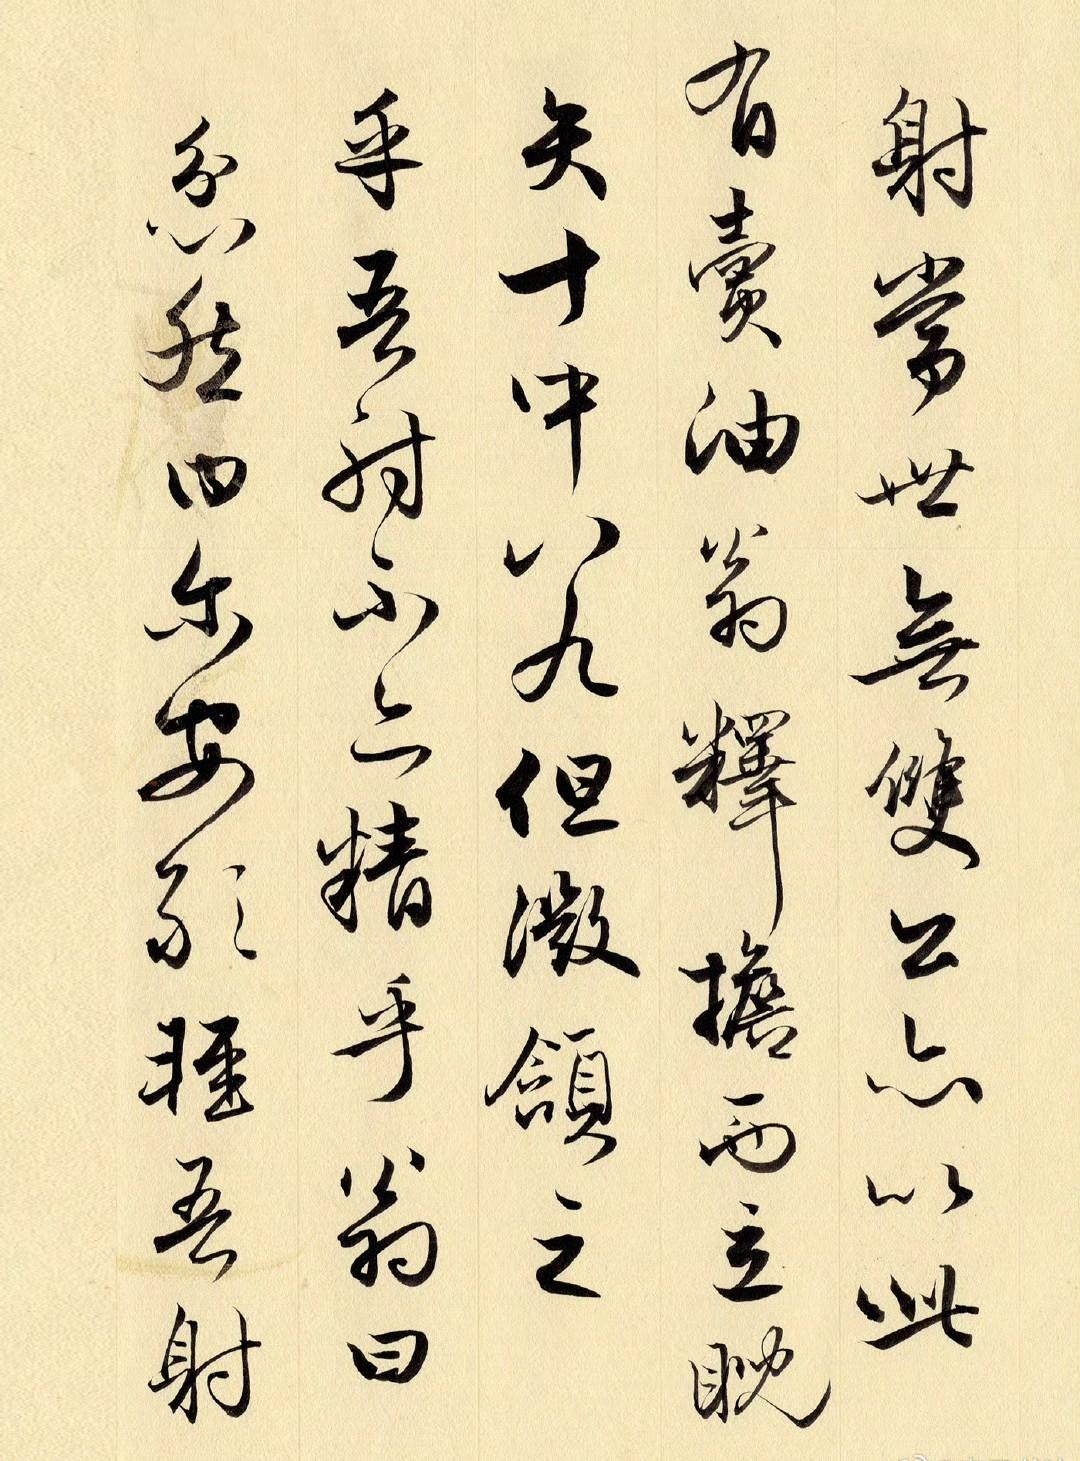 射當世無雙公亦以此
有賣油翁釋擔而立睨
矢十中八九但微頷之
乎吾射不亦精乎翁曰
忿然曰尔安敢輕吾射